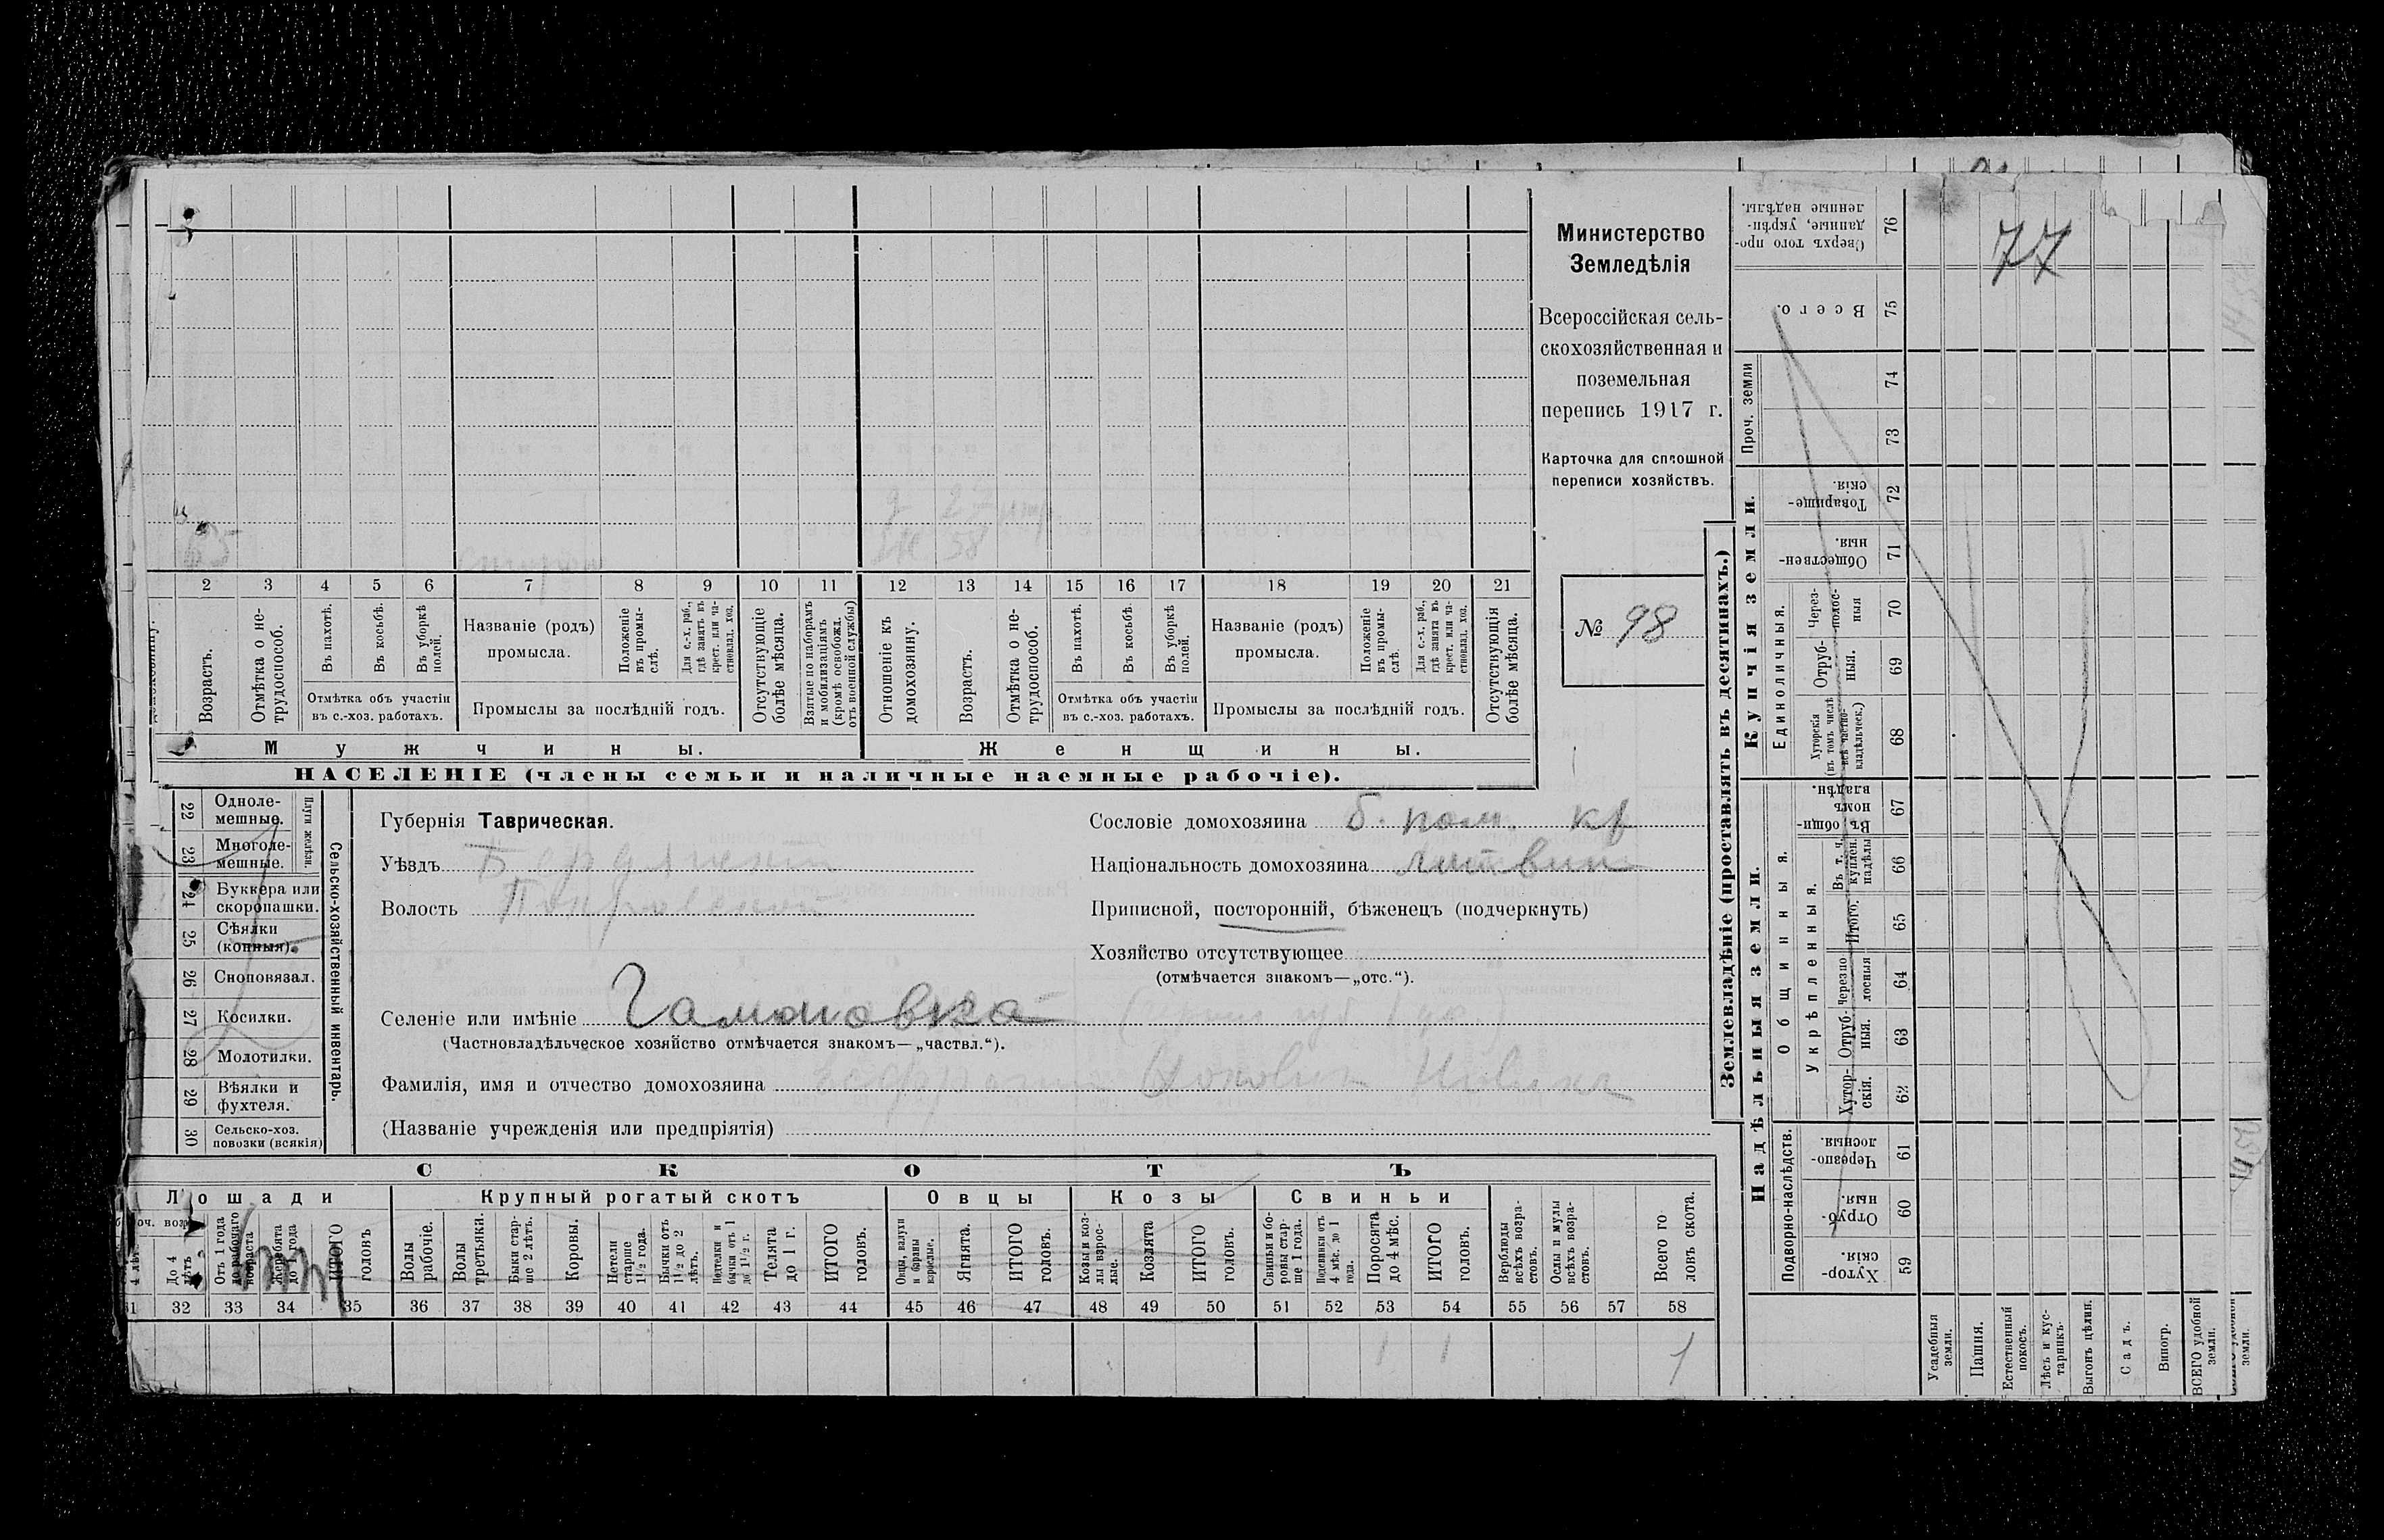 Министерство
Земледѣлія
Всероссійская сель-
скохозяйственная и
поземельная
перепись 1917 г.
Карточка для сплошной
переписи хозяйствъ.
№ 98
77
65
2 3 4 5 6 7 8 9 10 11 12 13 14 15 16 17 18 19 20 21
Возрастъ.
Отмѣтка о не-
трудоспособ.
Въ пахотѣ.
Въ косьбѣ.
Въ уборкѣ
полей.
Отмѣтка объ участіи
въ с.-хоз. работахъ.
Названіе (родъ)
промысла.
Положеніе
въ промы-
слѣ.
Для с.-х. раб.,
гдѣ занятъ въ
крест. или ча-
стновлад. хоз.
Промыслы за послѣдній годъ.
Отсутствующіе
болѣе мѣсяца.
Взятые по наборамъ
и мобилизаціямъ
(кромѣ освобожд.
отъ военной службы)
Отношеніе къ
домохозяину.
Возрастъ.
Отмѣтка о не-
трудоспособ.
Въ пахотѣ.
Въ косьбѣ.
Въ уборкѣ
полей.
Отмѣтка объ участіи
въ с.-хоз. работахъ.
Названіе (родъ)
промысла.
Положеніе
въ промы-
слѣ.
Для с.-х. раб.,
гдѣ занята въ
крест. или ча-
стновлад. хоз.
Промыслы за послѣдній годъ.
Отсутствующія
болѣе мѣсяца.
Мужчины.
Женщины.
НАСЕЛЕНІЕ (члены семьи и наличные наемные рабочіе).
22 Одноле-
мешные.
23 Многоле-
мешные.
Плуги желѣзн.
24 Буккера или
скоропашки.
25 Сѣялки
(конныя).
26 Сноповязал.
27 Косилки.
28 Молотилки.
29 Вѣялки и
фухтеля.
30 Сельско-хоз.
повозки (всякія)
Сельско-хозяйственный инвентарь.
Губернія Таврическая.
Уѣздъ Бердянскій
Волость Покровской
Сословіе домохозяина б. пом. кр
Національность домохозяина литвин
Приписной, посторонній, бѣженецъ (подчеркнуть)
Хозяйство отсутствующее
(отмѣчается знакомъ—„отс.“).
Селеніе или имѣніе Гамовка
(Частновладѣльческое хозяйство отмѣчается знакомъ—„частвл.“).
Фамилія, имя и отчество домохозяина
(Названіе учрежденія или предпріятія)
СКОТЪ
Лошади
Крупный рогатый скотъ
Овцы
Козы
Свиньи
До 4
лѣтъ
Отъ 1 года
до рабочаго
возраста
Жеребята
до 1 года
ИТОГО
головъ
Волы
рабочіе.
Волы
третьяки.
Быки стар-
ше 2 лѣтъ.
Коровы.
Нетели
старше
1½ года.
Бычки отъ
1½ до 2
лѣтъ.
Подтелки и
бычки отъ 1
до 1½ г.
Телята
до 1 г.
ИТОГО
головъ.
Овцы, валухи
и бараны
взрослые.
Ягнята.
ИТОГО
головъ.
Козы и коз-
лы взрос-
лые.
Козлята
ИТОГО
головъ.
Свиньи и бо-
ровы стар-
ше 1 года.
Подсвинки отъ
4 мѣс. до 1
года.
Поросята
до 4 мѣс.
ИТОГО
головъ.
Верблюды
всѣхъ возра-
стовъ.
Ослы и мулы
всѣхъ возра-
стовъ.
Всего го
ловъ скота.
31 32 33 34 35 36 37 38 39 40 41 42 43 44 45 46 47 48 49 50 51 52 53 54 55 56 57 58
1 1 1
Землевладѣніе (проставлять въ десятинахъ.)
Купчія земли.
Надѣльныя земли.
Сверхъ того про-
данные, укрѣп-
ленные надѣлы. 76
Всего. 75
Проч. земли 74 73
Товарище-
скія. 72
Обществен-
ныя. 71
Единоличныя.
Черезполос-
ныя 70
Отруб-
ныя. 69
Хуторскія
(въ томъ числѣ
всѣ частно-
владѣльческ.) 68
Общинныя.
Въ общи-
номъ
владѣн. 67
Укрѣпленныя.
Въ т. ч.
куплен.
надѣлы 66
Итого. 65
Черезпо
лосныя 64
Отруб-
ныя. 63
Хутор-
скія. 62
Подворно-наслѣдств.
Черезпо-
лосныя. 61
Отруб-
ныя. 60
Хутор-
скія. 59
Усадебныя
земли.
Пашня.
Естественный
покосъ.
Лѣсъ и кус-
тарникъ.
Выгонъ цѣлин.
Садъ.
Виногр.
ВСЕГО удобной
земли.